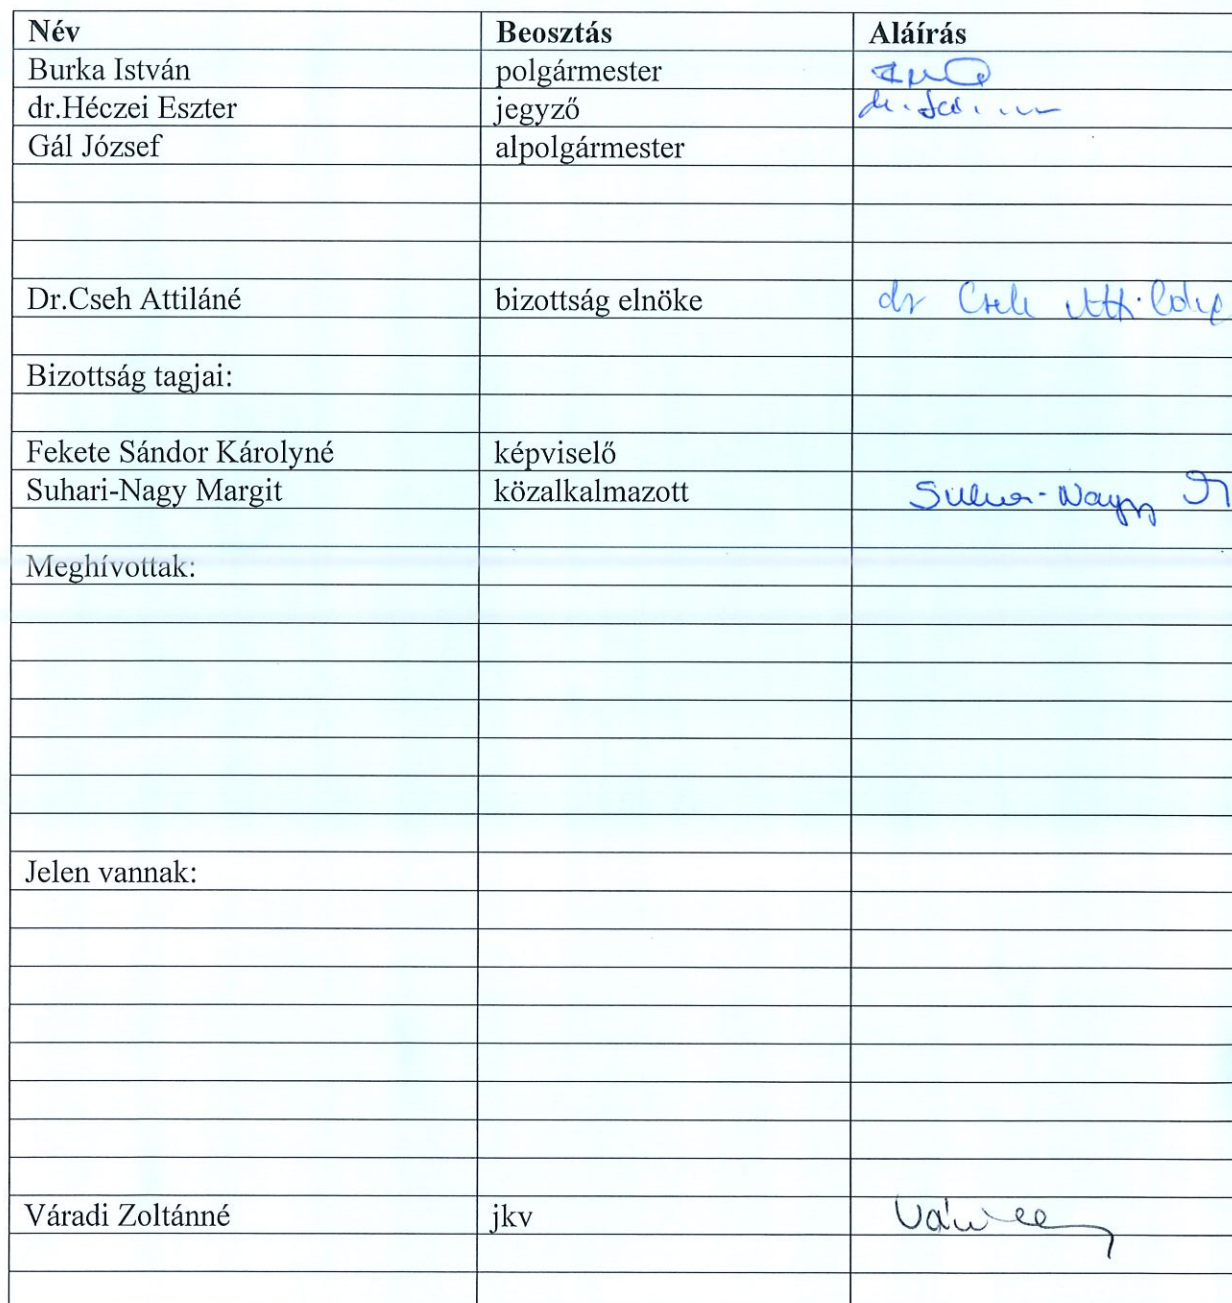 Név Beosztás Aláírás
Burka István polgármester
dr.Héczei Eszter jegyző
Gál József alpolgármester
Dr.Cseh Attiláné bizottság elnöke dr Cseh Attiláné
Bizottság tagjai:
Fekete Sándor Károlyné képviselő
Suhari-Nagy Margit közalkalmazott Suhari-Nagy M
Meghívottak:
Jelen vannak:
Váradi Zoltánné jkv